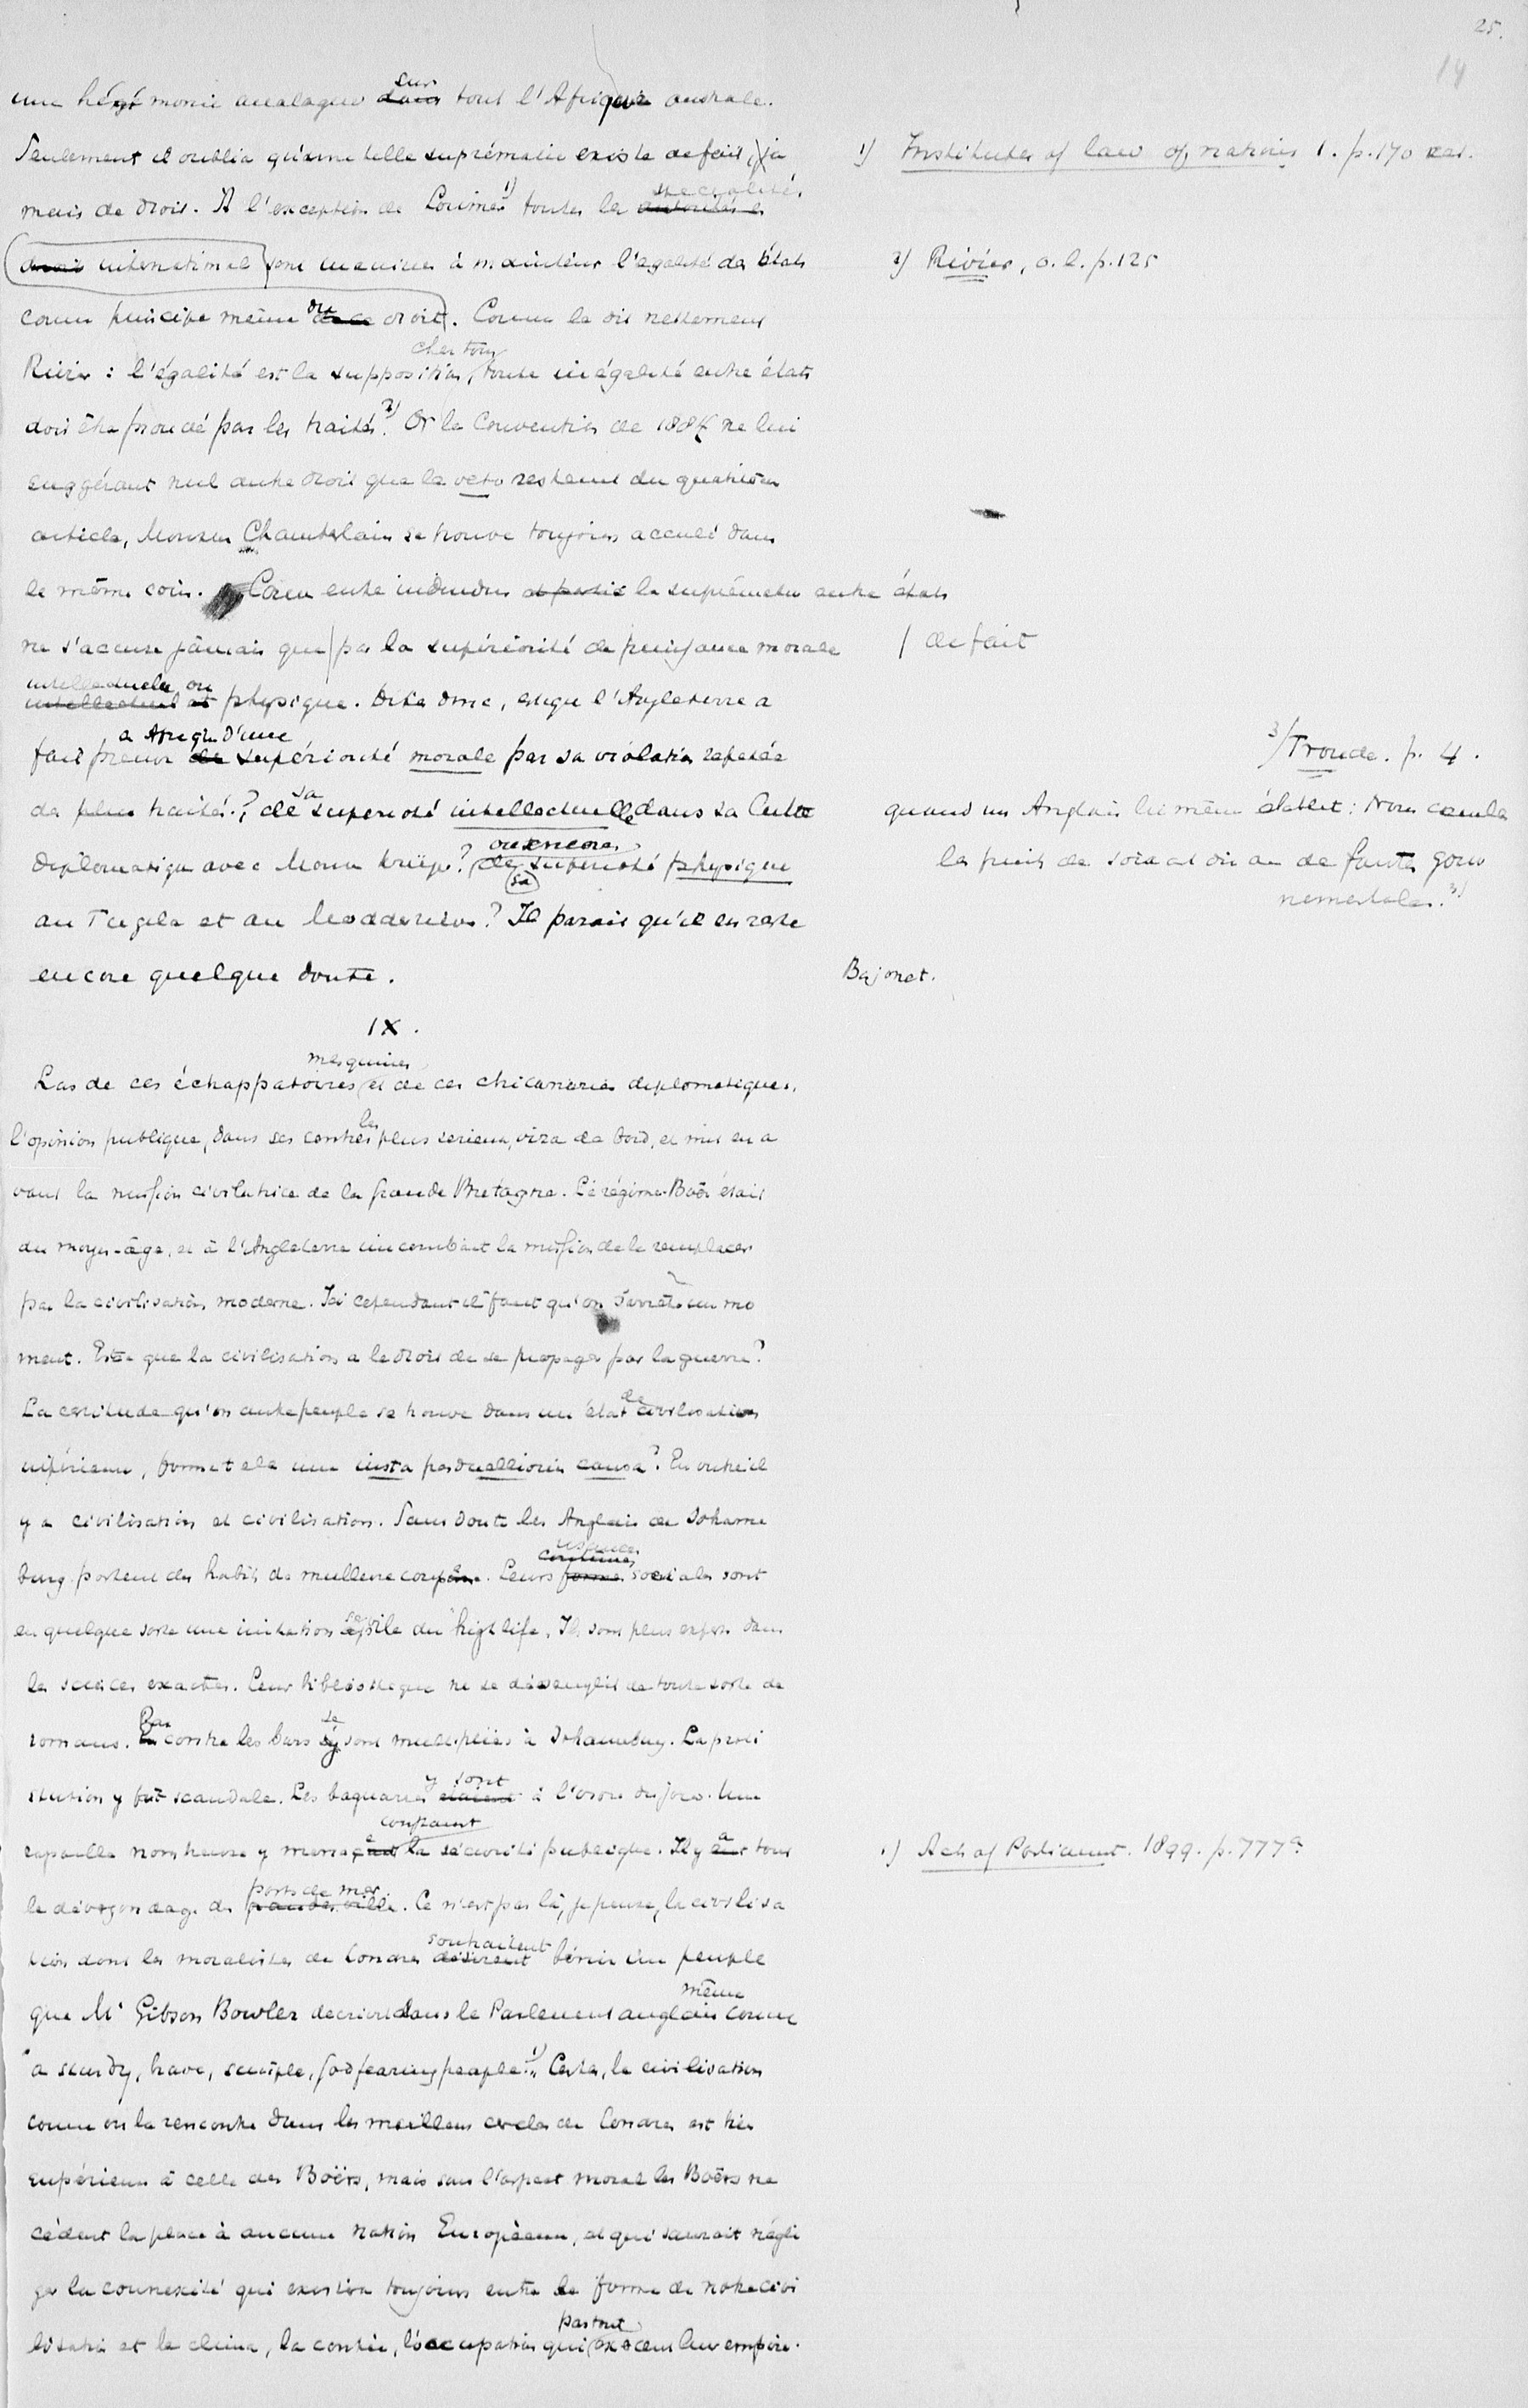 25.
14
une hégémonie analogue sur tout l'Afrique australe.
Seulement il oublia qu'une telle suprématie existe de fait, ja
mais de droit. A l'exception de Lorimer 1) toutes les specialités
droit international sont unanimes à maintenir l'egalité des états
comme principe même du droit. Comme le dit nettement
Rivier : l'égalité est la supposition, chez tous toute inégalité entre états
doit être prouvé par les traités. 2) Or la Convention de 1884 ne lui
suggérant nul autre droit que le veto restant du quatrième
article, Monsieur Chamberlain se trouve toujours acculé dans
le même coin. Comme entre individus la suprématie entre états
ne s'accuse jamais que | par la supériorité de puissance morale
intellectuelle ou physique. Dites donc, esque l'Angleterre a
fait preuve en Afrique d'une supériorité morale par sa violation repetée
de traités? de sa superiorité intellectuelle dans sa lutte
diplomatique avec Monsieur Krüger? ou encore de sa superiorité physique
au Tugela et au Modderrivier? Il parait qu'il en reste
encore quelque doute.
1) Institutes of law of nations 1. p. 170 
2) Rivier, o. l. p. 125
| de fait
3) Froude. p. 4.
quand un Anglais lui même établit: Nous 
les fruits de de fautes gouv
nementales. 3)
Bajonet.
IX.
Las de ces échappatoires mesquines et de ces chicaneries diplomatiques,
l'opinion publique, dans ses centres les plus serieux, vira de bord, et mit en a
vant la mission civilatrice de la Grande Bretagne. Le régime Boër était
du moyen-âge, et à l'Angleterre incombait la mission de le remplacer
par la civilisation moderne. Ici cependant il faut qu'on s'arrête un mo
ment. Estce que la civilisation a le droit de se propager par la guerre?
La certitude qu'un autre peuple se trouve dans un état de civilisation
inférieure, formet elle une iusta perduellionis causa? En outre il
y a civilisation et civilisation. Sans doute les Anglais de Johannes
burg portent des habits de meilleure coupe. Leurs usances sociales sont
en quelque sorte une imitation servile du high life. Ils sont plus experts dans
les sciences exactes. Leur bibliotheque ne se désemplit de toute sorte de
romans. Par contre les bars se sont multipliées à Johannesburg. La prosti
stution y fait scandale. Les bagarres y sont à l'ordre du jour. Une
crapaille nombreuse y menace la sécurité publique. Il y a tout
le dévergondage des ports de mer. Ce n'est pas là, je pense, la civilisa
tion dont les moralistes de Londres souhaitent bénir un peuple
que Mr Gibson Bowler decrivit dans le Parlement anglais même comme
"a sturdy, brave, simple, god fearing people". 1) Certes, la civilisation
comme on la rencontre dans les meilleurs cercles de Londres est très
supérieure à celle des Boërs, mais sous l'aspect moral les Boërs ne
cèdent la place à aucune nation Européenne, et qui saurait négli
ger la connexité qui existera toujours entre la forme de notre civi
lisation et le climat, la contrée, l'occupation qui partout exercent leur empire.
1) Acts of Parliament. 1899. p. 777a